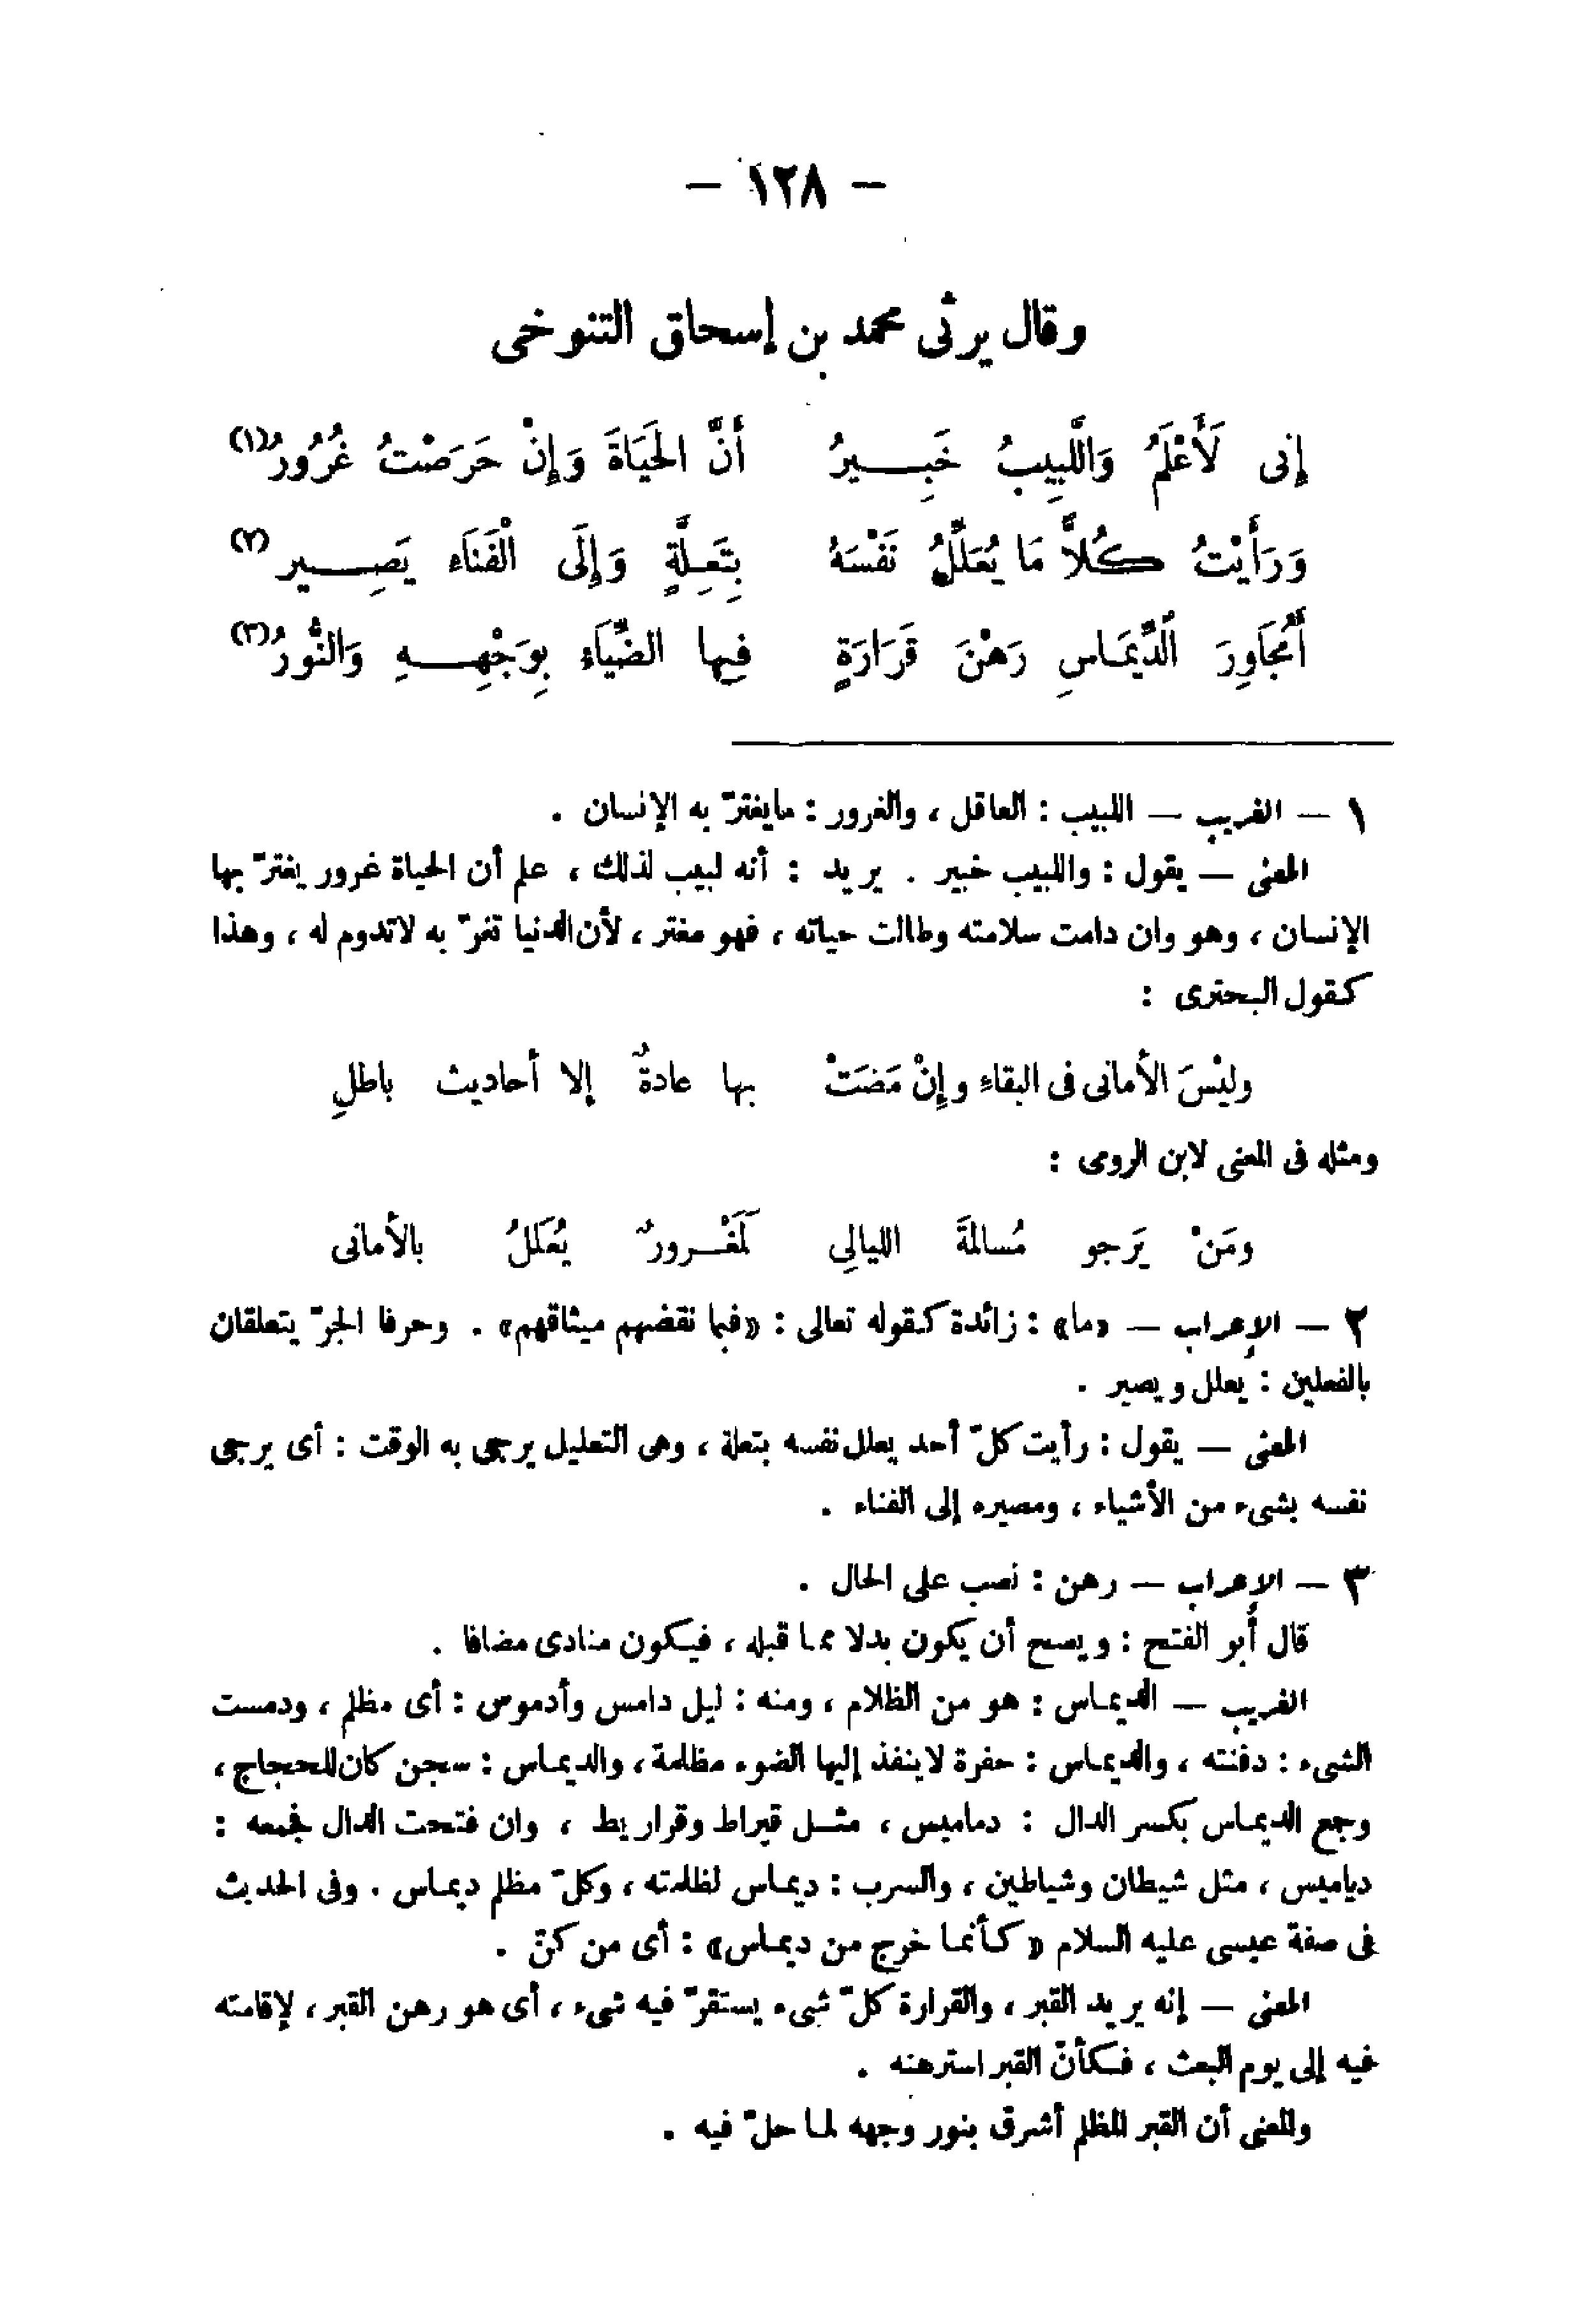 — ١٢٨ —
وقال يرثى محمد بن إسحاق التنوخى
إنى لَأَعْلَمُ وَاللَّبِيبُ خَبِيرُ أَنَّ الحَيَاةَ وَإِنْ حَرَصْتُ غُرُورُ (١)
وَرَأَيْتُ كُلاًّ مَا يُعَلِّلُ نَفْسَهُ بِتَعِلَّةٍ وَإِلَى الْفَنَاءِ يَصِير (٢)
أَمُجَاوِرَ الدِّيمَاسِ رَهْنَ قَرَارَةٍ فِيها الضِّيَاءُ بِوَجْهِهِ وَالنُّورُ (٣)
١ — الغريب — اللبيب : العاقل ، والغرور : مايغترّ به الإنسان .
المعنى — يقول : واللبيب خبير . يريد : أنه لبيب لذلك ، علم أن الحياة غرور يغترّ بها
الإنسان ، وهو وان دامت سلامته وطالت حياته ، فهو مغتر ، لأن الدنيا تغرّ به لاتدوم له ، وهذا
كقول البحترى :
وليْسَ الأمانى فى البقاءِ وإِنْ مَضَتْ بها عادةٌ إلا أحاديث باطلِ
ومثله فى المعنى لابن الرومى :
ومَنْ يَرجو مُسالمَةَ الليالِى لَمَغْرورٌ يُعَلَلُ بالأمانى
٢ — الإعراب — «ما» : زائدة كقوله تعالى : «فبما نقضهم ميثاقهم» . وحرفا الجرّ يتعلقان
بالفعلين : يعلل ويصير .
المعنى — يقول : رأيت كلّ أحد يعلل نفسه بتعلة ، وهى التعليل يرجى به الوقت : أى يرجى
نفسه بشىء من الأشياء ، ومصيره إلى الفناء .
٣ — الإعراب — رهن : نصب على الحال .
قال أبو الفتح : ويصح أن يكون بدلا مما قبله ، فيكون منادى مضافا .
الغريب — الديماس : هو من الظلام ، ومنه : ليل دامس وأدموس : أى مظلم ، ودمست
الشىء : دفنته ، والديماس : حفرة لاينفذ إليها الضوء مظلمة ، والديماس : سجن كان للحجاج ،
وجمع الديماس بكسر الدال : دماميس ، مثل قيراط وقراريط ، وان فتحت الدال فجمعه :
دياميس ، مثل شيطان وشياطين ، والسرب : ديماس لظلمته ، وكلّ مظلم ديماس . وفى الحديث
فى صفة عيسى عليه السلام «كأنما خرج من ديماس» : أى من كنّ .
المعنى — إنه يريد القبر ، والقرارة كلّ شىء يستقرّ فيه شىء ، أى هو رهن القبر ، لإقامته
فيه إلى يوم البعث ، فكأنّ القبر استرهنه .
والمعنى أن القبر المظلم أشرق بنور وجهه لما حلّ فيه .